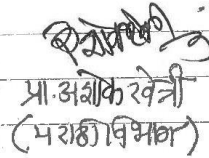 प्रा.अशोक खेत्री
(मराठी विभाग)